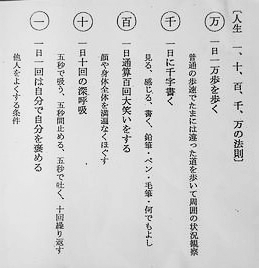 〔人生 一、十、百、千、万の法則〕
万 一日一万歩を歩く
普通の歩速でたまには違った道を歩いて周囲の状況観察
千 一日に千字書く
見る、感じる、書く、鉛筆・ペン・毛筆・何でもよし
百 一日通算百回大笑いをする
顔や身体全体を満遍なくほぐす
十 一日十回の深呼吸
五秒で吸う、五秒間止める、五秒で吐く、十回繰り返す
一 一日一回は自分で自分を褒める
他人をよくする条件